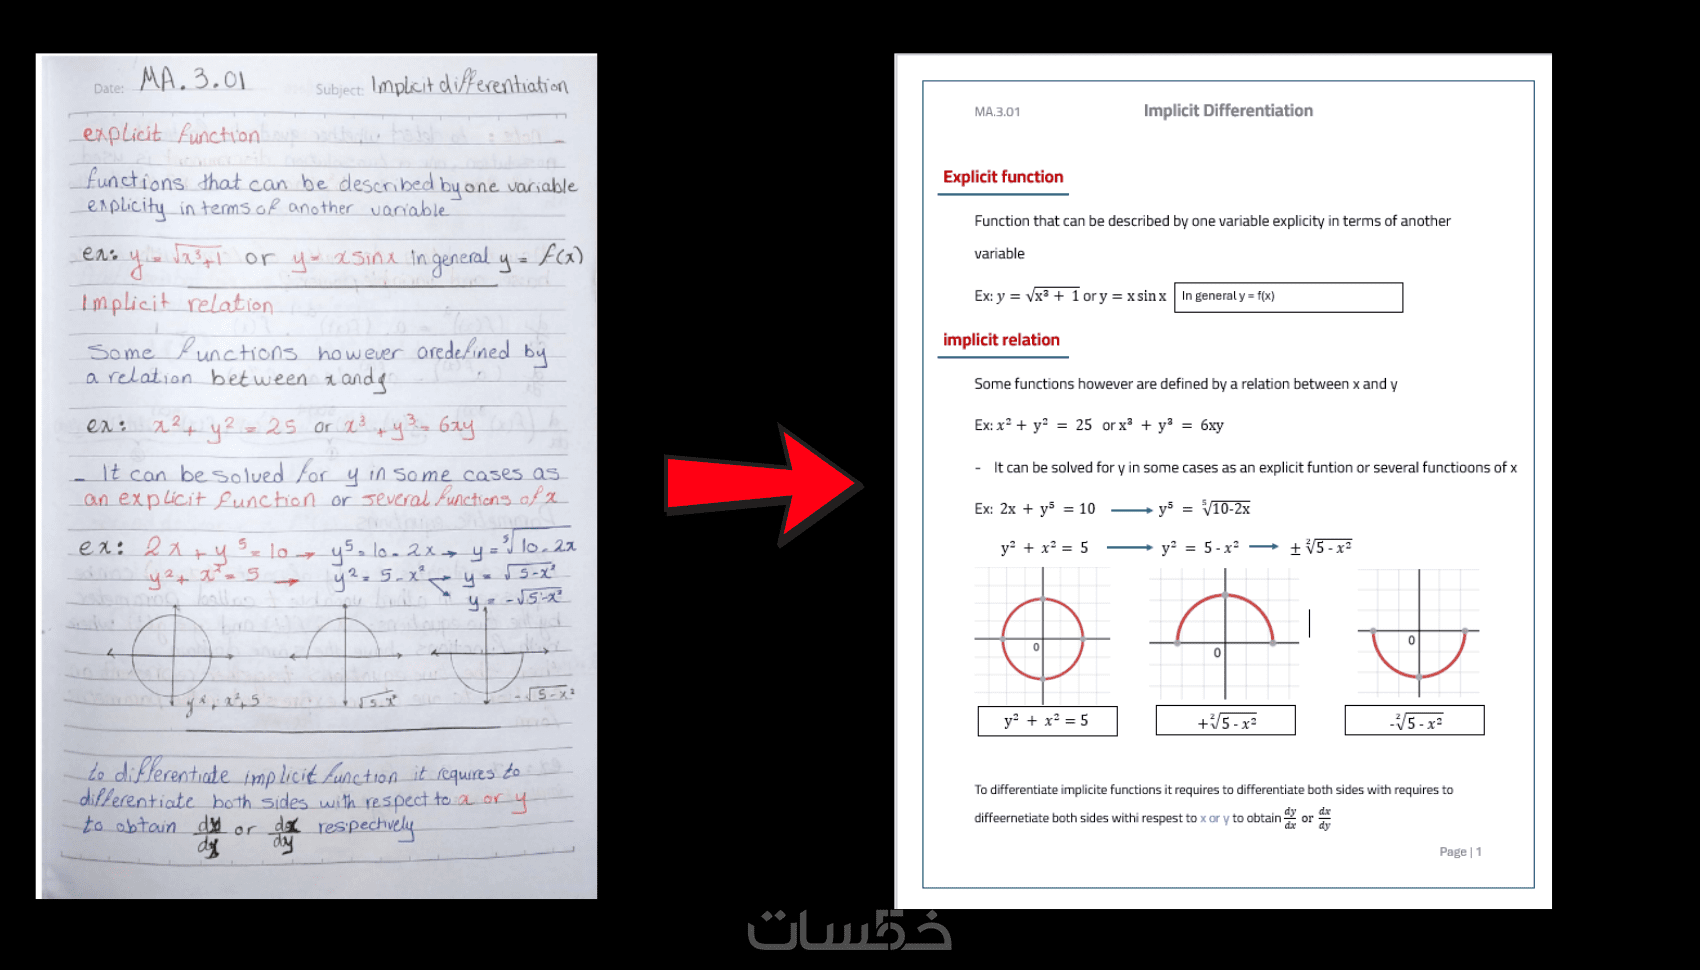 Date: MA.3.01 Subject: Implicit differentiation
explicit function
functions that can be described by one variable
explicity in terms of another variable
ex: y = √x³+1 or y = x sinx in general y = f(x)
Implicit relation
Some functions however are defined by
a relation between x and y
ex: x² + y² = 25 or x³ + y³ = 6xy
- It can be solved for y in some cases as
an explicit function or several functions of x
ex: 2x + y⁵ = 10 → y⁵ = 10 - 2x → y = ⁵√10-2x
y² + x² = 5 → y² = 5 - x² y = √5-x²
y = -√5-x²
y² + x² = 5 √5-x² -√5-x²
to differentiate implicit function it requires to
differentiate both sides with respect to x or y
to obtain dy/dx or dx/dy respectively
MA.3.01 Implicit Differentiation
Explicit function
Function that can be described by one variable explicity in terms of another
variable
Ex: y = √x³ + 1 or y = x sin x In general y = f(x)
implicit relation
Some functions however are defined by a relation between x and y
Ex: x² + y² = 25 or x³ + y³ = 6xy
- It can be solved for y in some cases as an explicit funtion or several functioons of x
Ex: 2x + y⁵ = 10 → y⁵ = ⁵√10-2x
y² + x² = 5 → y² = 5 - x² → ± ²√5 - x²
0 0 0
y² + x² = 5 +²√5 - x² -²√5 - x²
To differentiate implicite functions it requires to differentiate both sides with requires to
diffeernetiate both sides withi respest to x or y to obtain dy/dx or dx/dy
Page | 1
خمسات